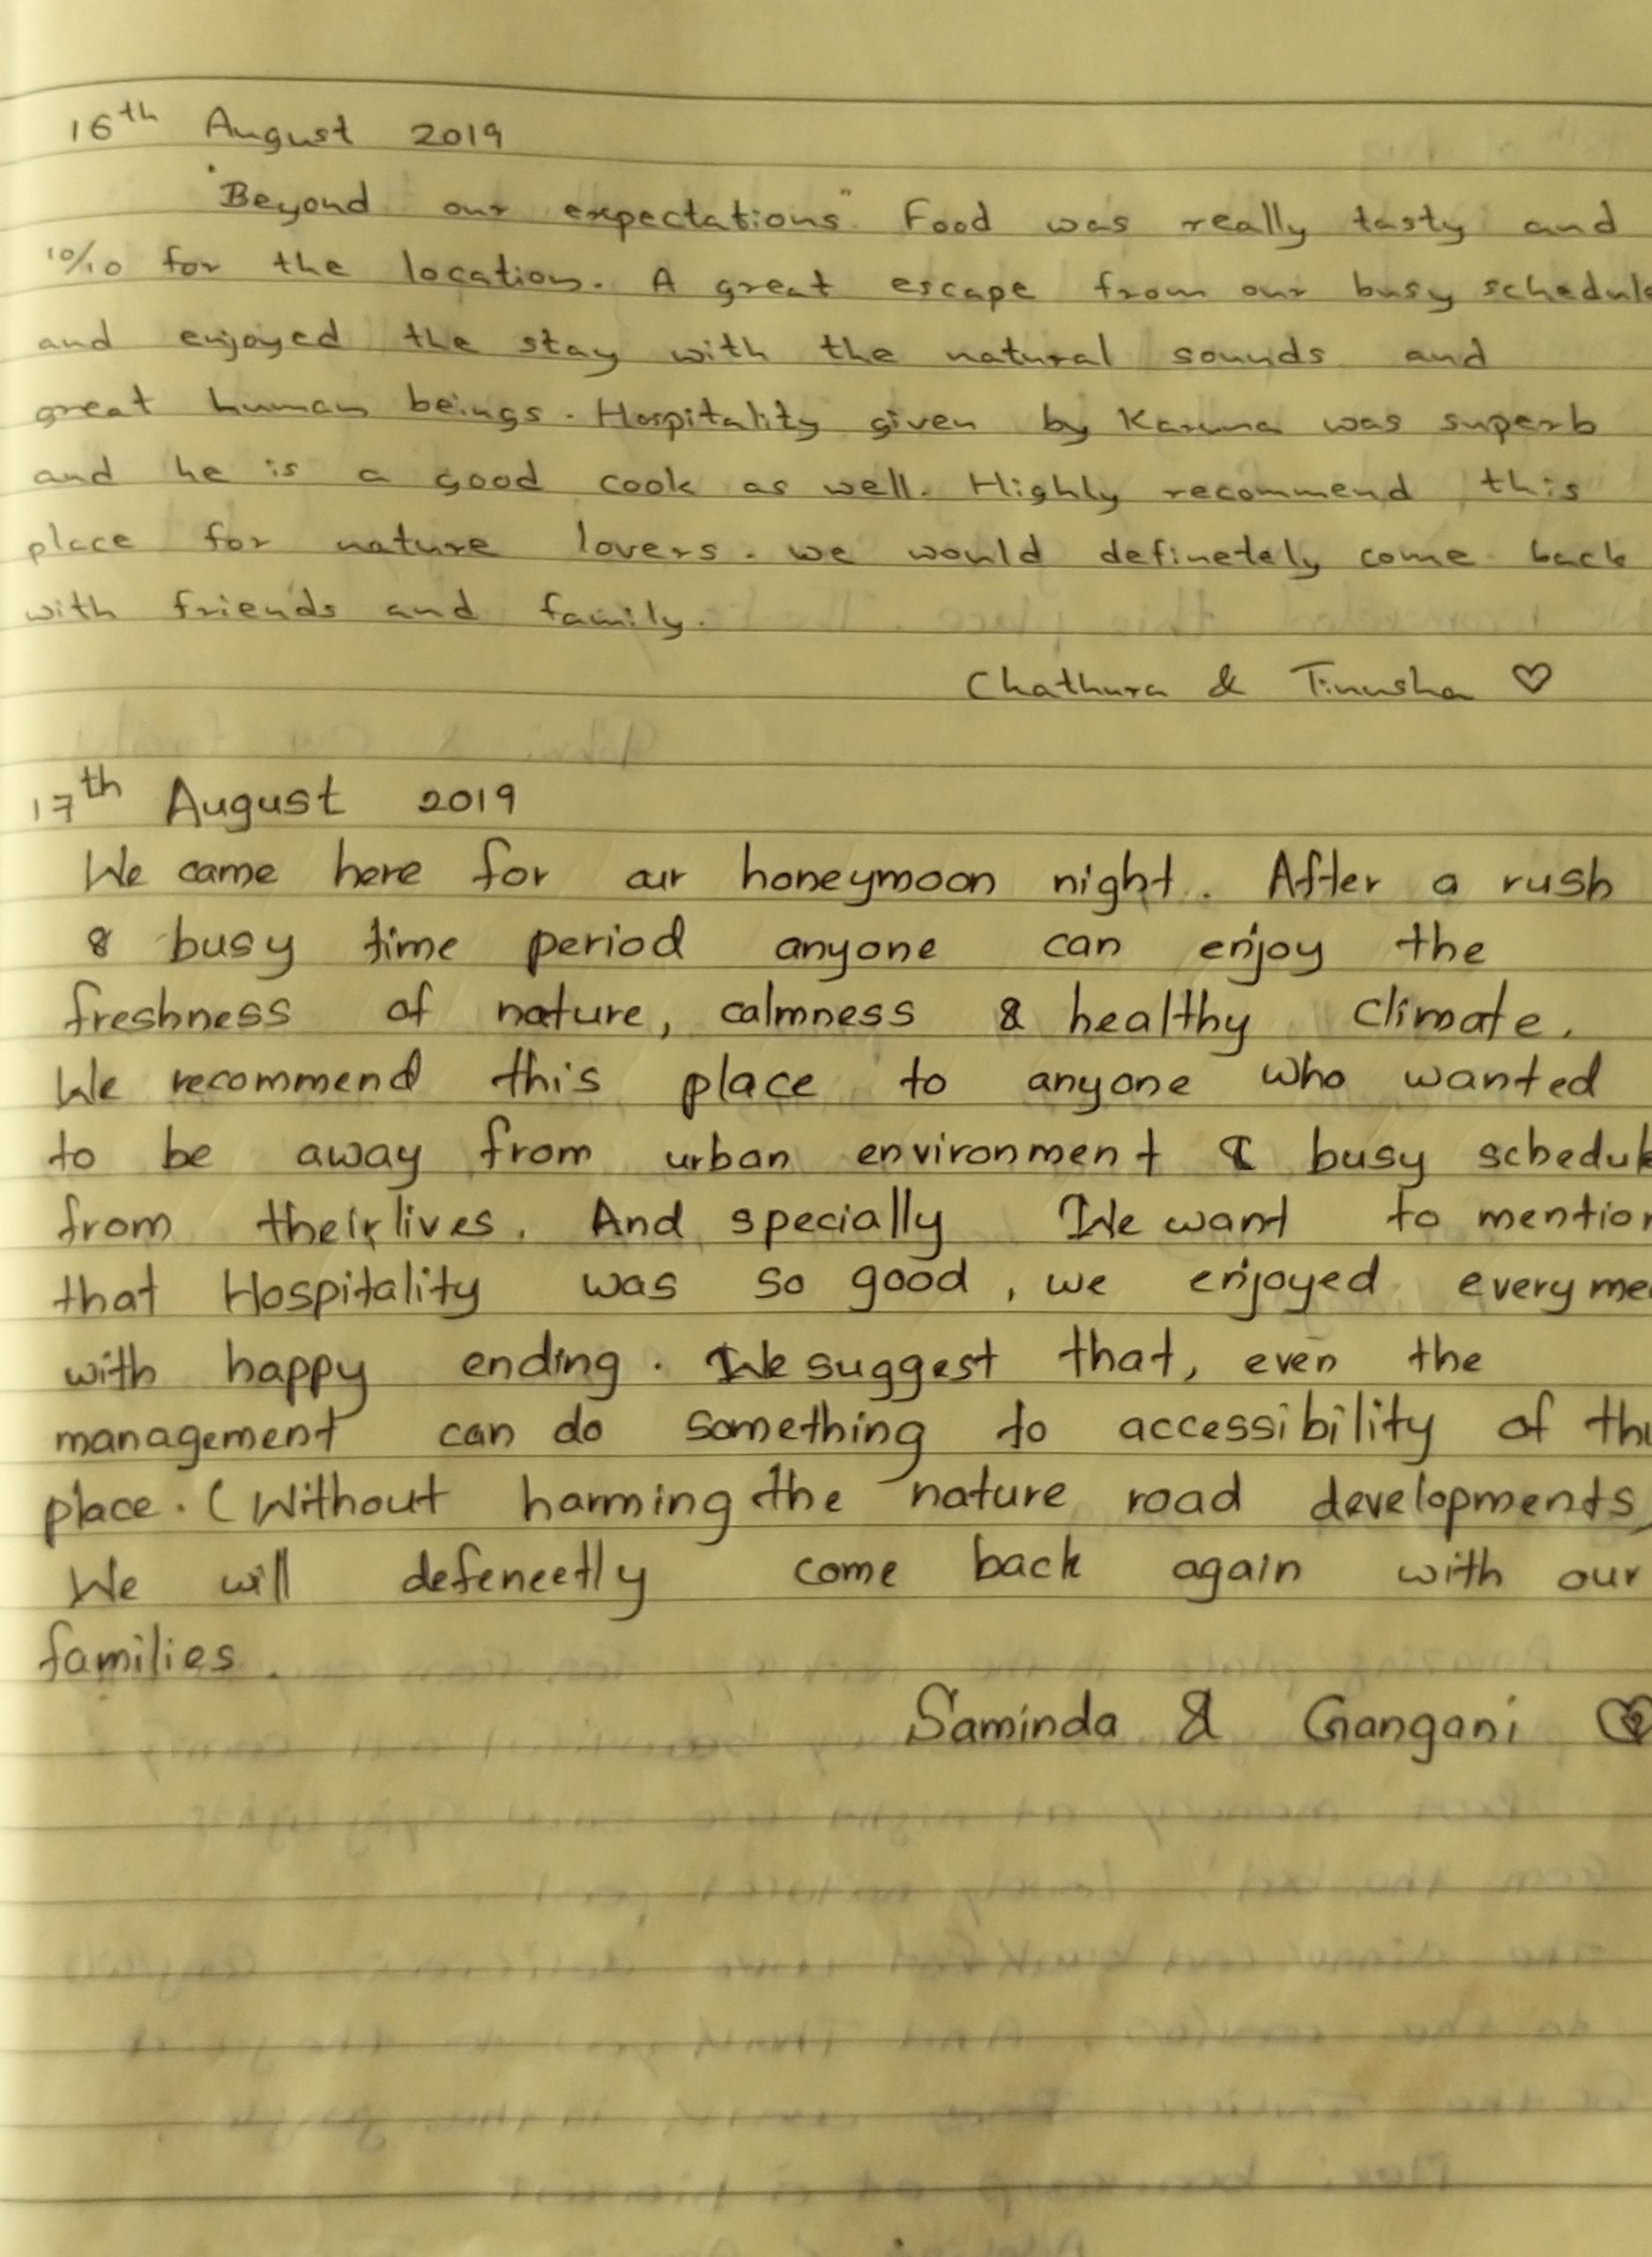 16th August 2019
"Beyond our expectations" Food was really tasty and
10/10 for the location. A great escape from our busy schedule
and enjoyed the stay with the natural sounds and
great human beings. Hospitality given by Karuna was superb
and he is a good cook as well. Highly recommend this
place for nature lovers. we would definetely come back
with friends and family.
Chathura & Tinusha ♡
17th August 2019
We came here for our honeymoon night. After a rush
& busy time period anyone can enjoy the
freshness of nature, calmness & healthy climate.
We recommend this place to anyone who wanted
to be away from urban environment & busy schedul
from their lives. And specially We want to mention
that Hospitality was so good, we enjoyed every me
with happy ending. We suggest that, even the
management can do something to accessibility of thi
place. (Without harming the nature road developments)
We will defeneetly come back again with our
families.
Saminda & Gangani